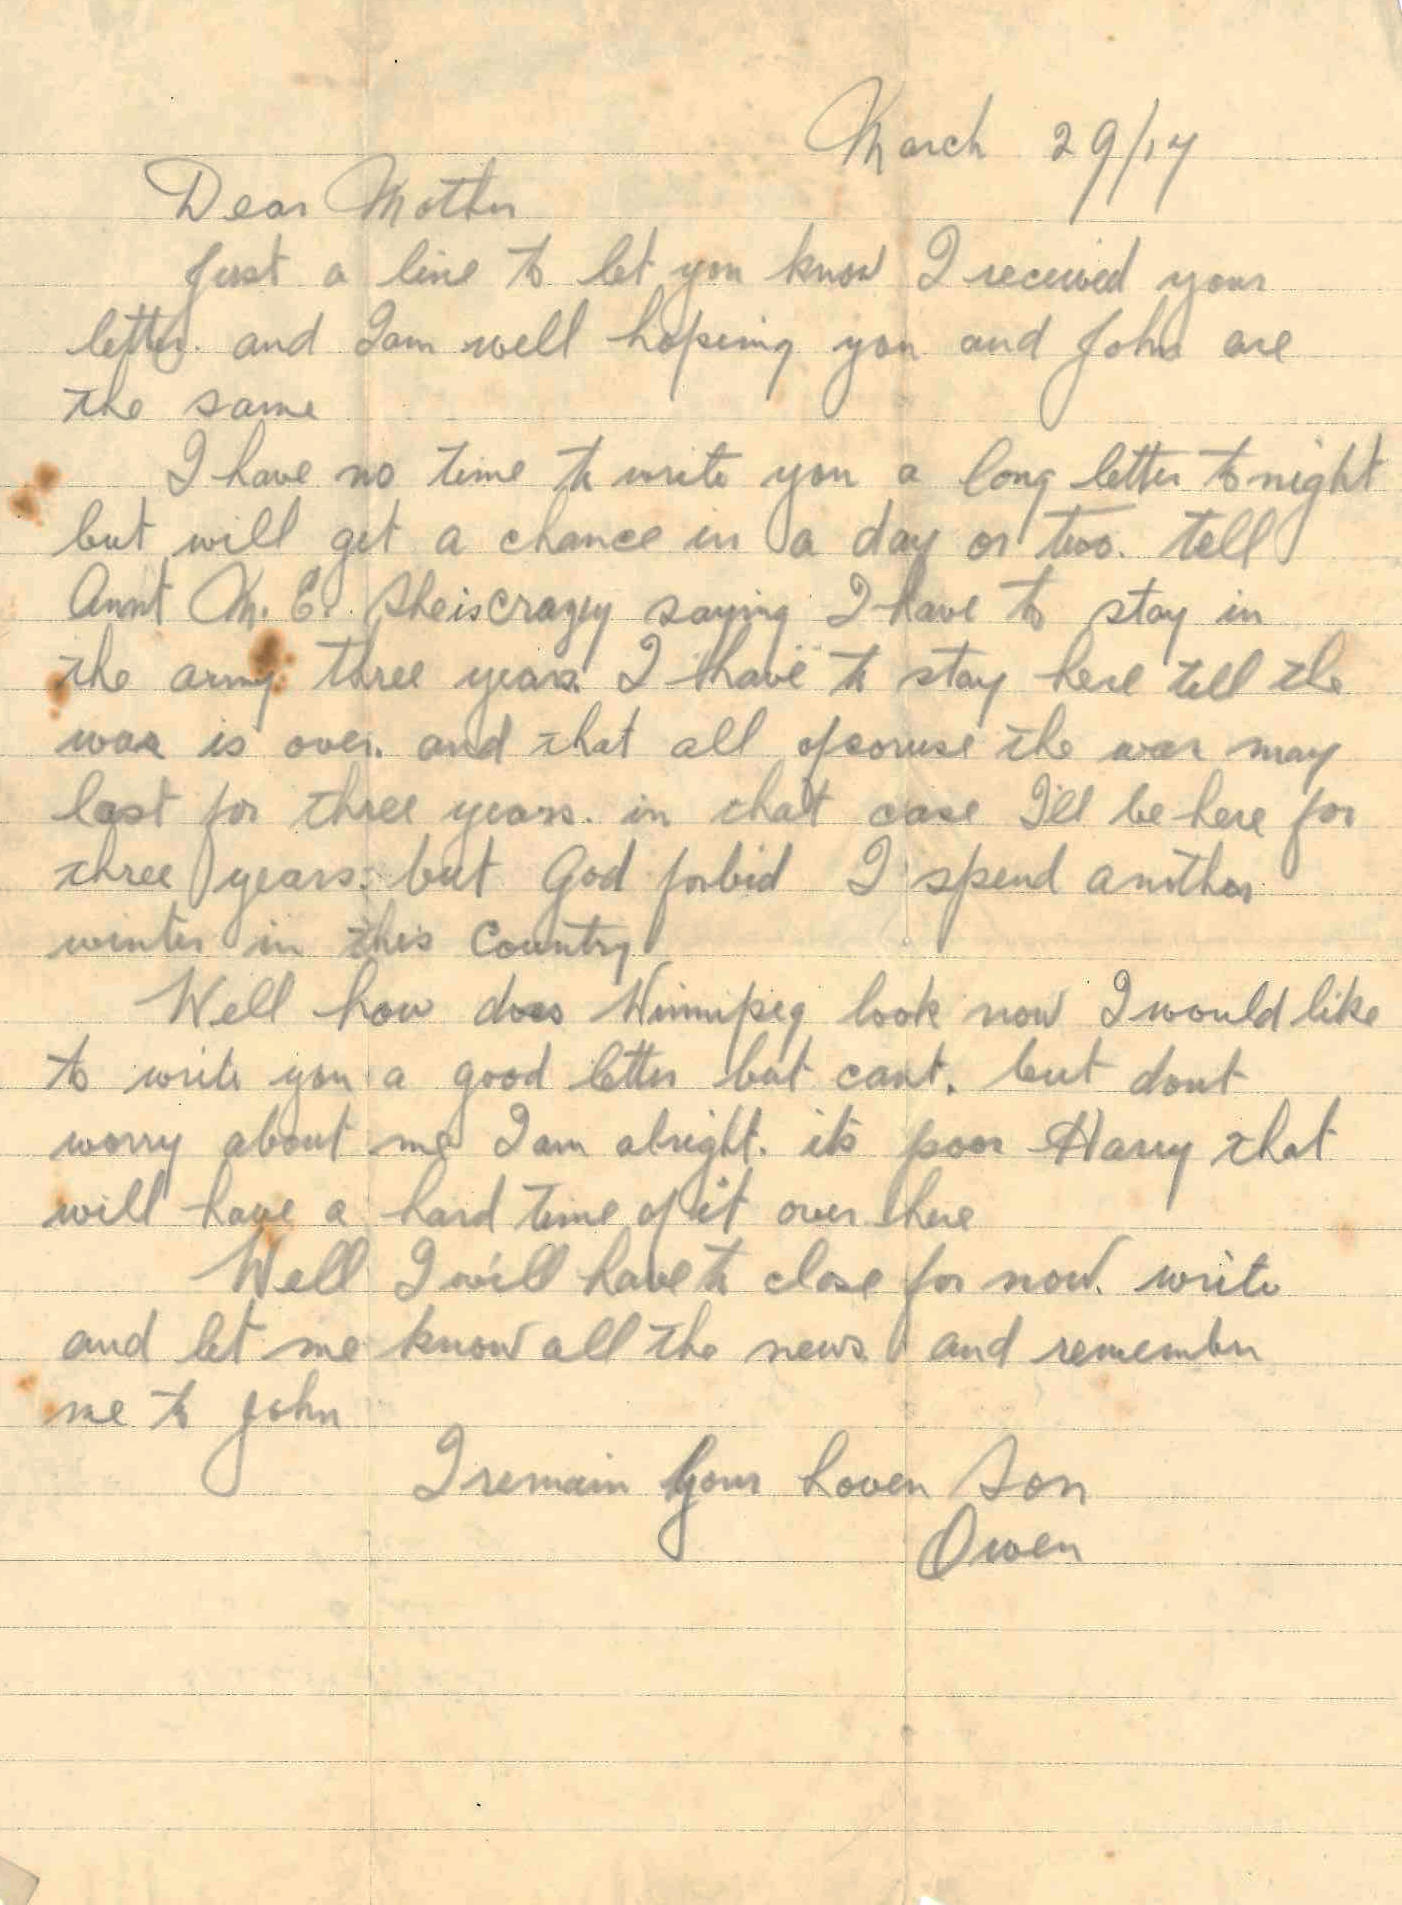 March 29/17
Dear Mother
Just a line to let you know I received your
letter. and I am well hopeing you and John are
the same
I have no time to write you a long letter to night
but will get a chance in a day or two. tell
Aunt M. E. she is crazey saying I have to stay in
the army three years. I have to stay here till the
war is over. and that all ofcoruse the war may
last for three years. in that case I'll be here for
three years. but God forbid I spend another
winter in this Country
Well how does Winnipeg look now I would like
to write you a good letter but cant. but dont
worry about me I am alright. its poor Harry that
will have a hard time of it over here
Well I will have to close for now. write
and let me know all the news and remember
me to John
I remain Your Loven Son
Owen